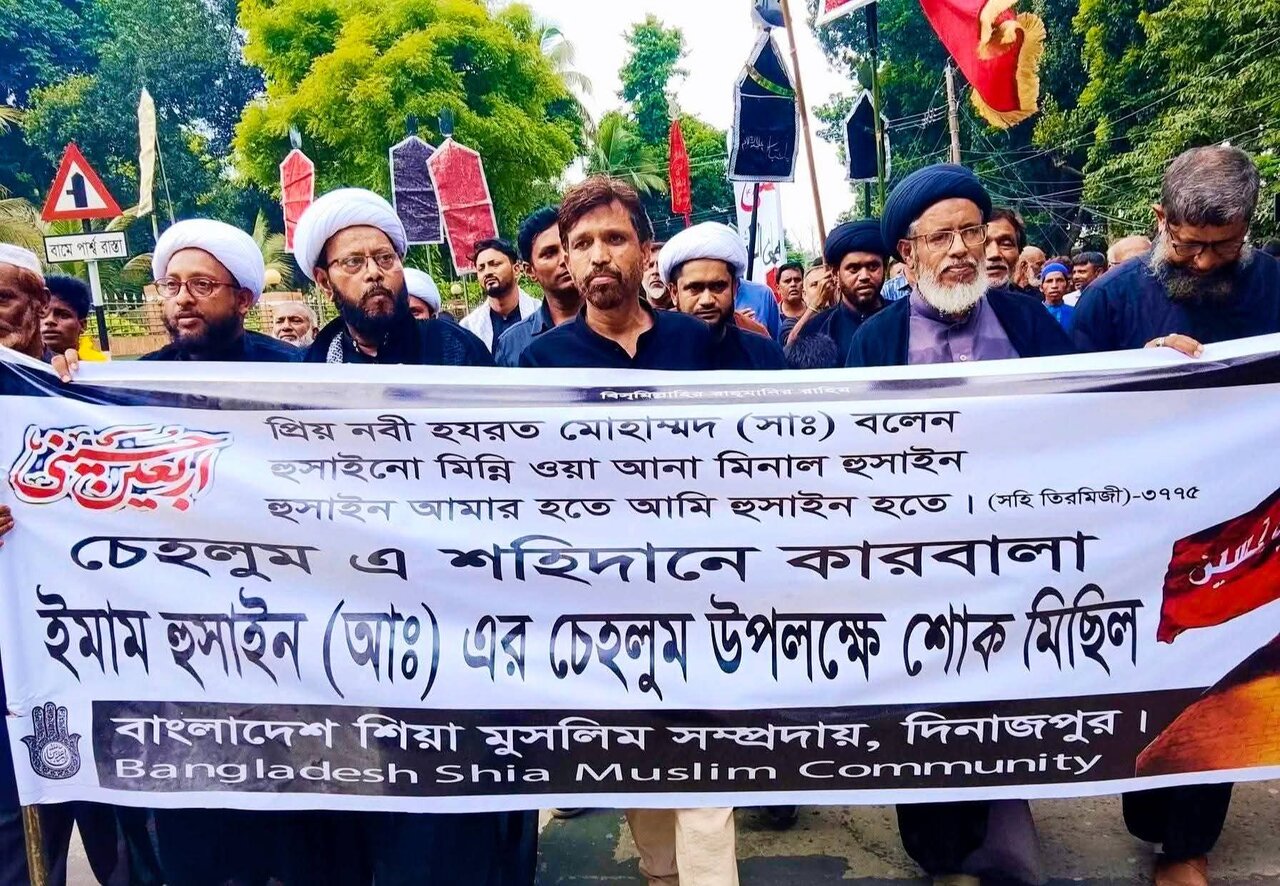 বামে পার্শ্ব রাস্তা
বিসমিল্লাহির রাহমানির রাহিম
اربعین حسینی
প্রিয় নবী হযরত মোহাম্মদ (সাঃ) বলেন
হুসাইনো মিন্নি ওয়া আনা মিনাল হুসাইন
হুসাইন আমার হতে আমি হুসাইন হতে। (সহি তিরমিজী)-৩৭৭৫
চেহলুম এ শহিদানে কারবালা
ইমাম হুসাইন (আঃ) এর চেহলুম উপলক্ষে শোক মিছিল
বাংলাদেশ শিয়া মুসলিম সম্প্রদায়, দিনাজপুর।
Bangladesh Shia Muslim Community